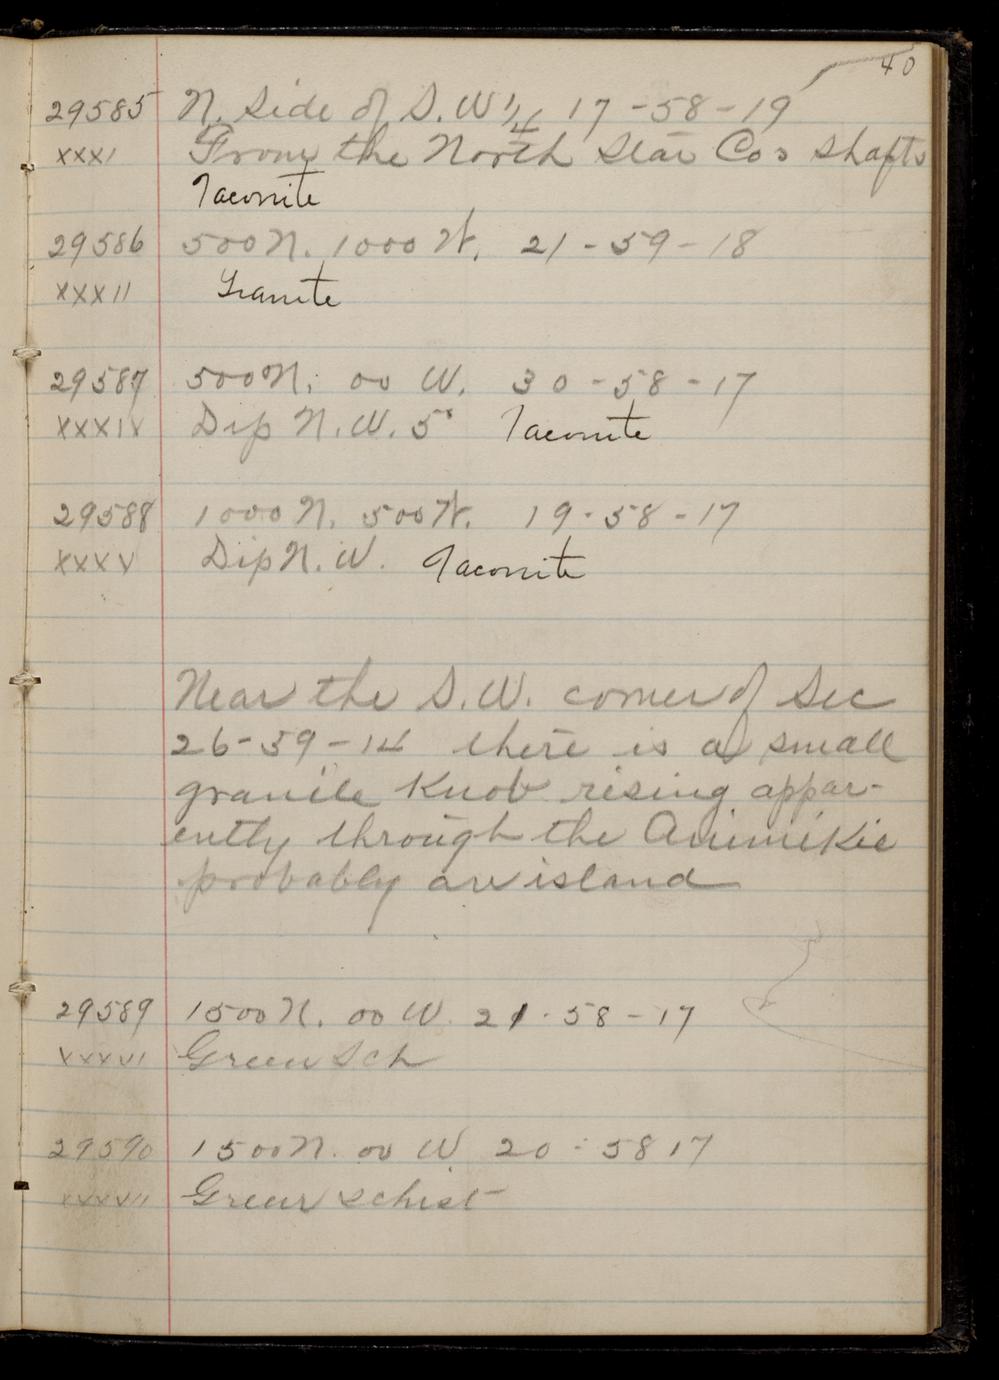 40
29585 N. Side of S.W 1/4 17-58-19
XXXI From the North Star Cos shafts
Taconite
29586 500 N. 1000 W. 21-59-18
XXXII Granite
29587 500 N. 00 W. 30-58-17
XXXIV Dip N.W. 5° Taconite
29588 1000 N. 500 W. 19-58-17
XXXV Dip N.W. Taconite
Near the S.W. corner of Sec
26-59-14 there is a small
granite Knob rising appar-
ently through the Animikie
probably an island
29589 1500 N. 00 W 21-58-17
XXXVI Green Sch
29590 1500 N. 00 W 20-58 17
XXXVII Green schist